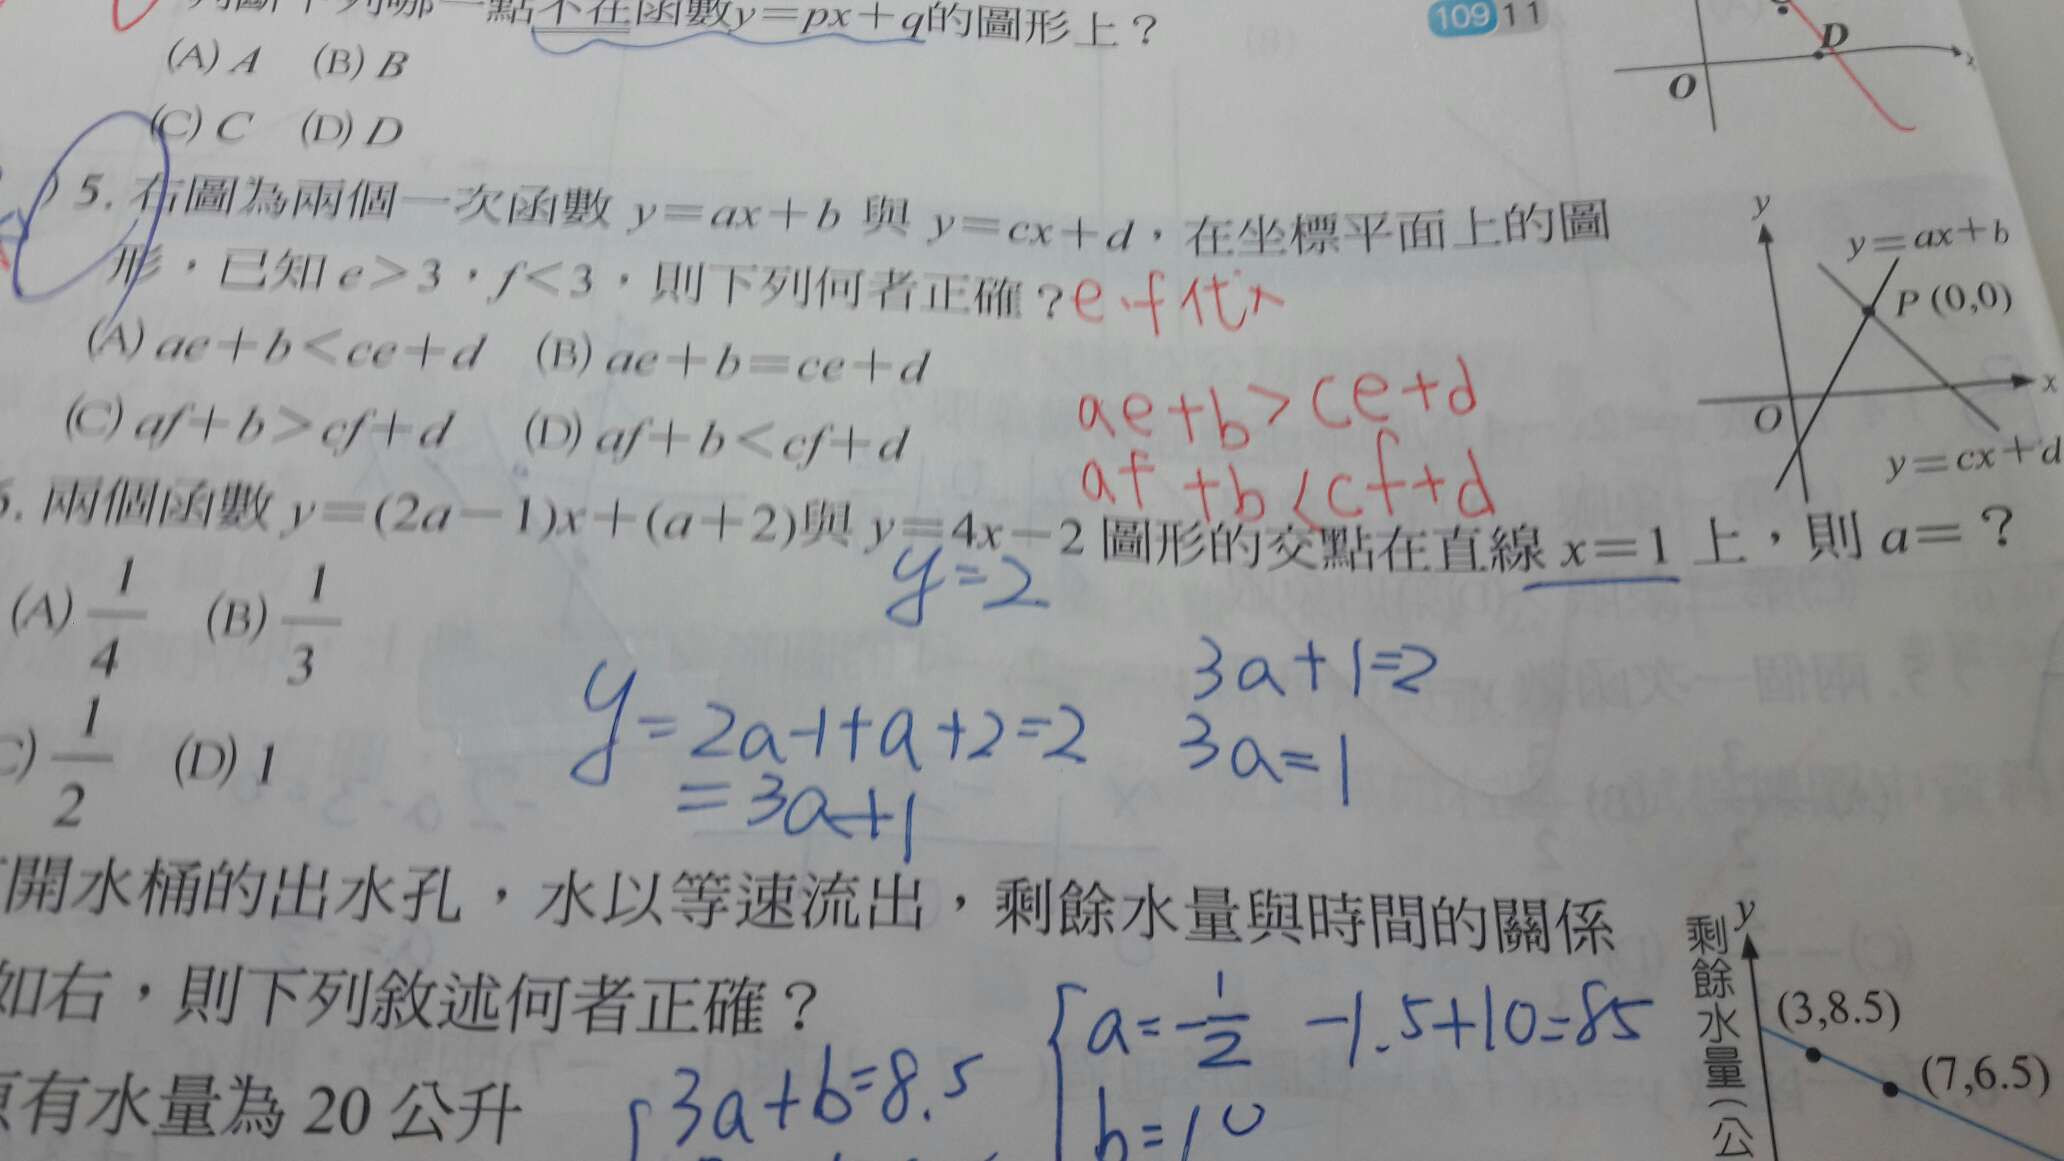 點不在函數y=px+q的圖形上？
109 11
(A) A (B) B
(C) C (D) D
D
O
x
5. 右圖為兩個一次函數 y=ax+b 與 y=cx+d，在坐標平面上的圖
形，已知 e>3，f<3，則下列何者正確？
e、f代入
(A) ae+b<ce+d (B) ae+b=ce+d
(C) af+b>cf+d (D) af+b<cf+d
ae+b>ce+d
af+b<cf+d
y
y=ax+b
P (0,0)
O
x
y=cx+d
6. 兩個函數 y=(2a-1)x+(a+2)與 y=4x-2 圖形的交點在直線 x=1 上，則 a=？
y=2
(A) 1/4 (B) 1/3
(C) 1/2 (D) 1
y=2a-1+a+2=2
=3a+1
3a+1=2
3a=1
開水桶的出水孔，水以等速流出，剩餘水量與時間的關係
如右，則下列敘述何者正確？
原有水量為 20 公升
3a+b=8.5
a=-1/2 -1.5+10=85
b=10
y
剩餘水量(公
(3,8.5)
(7,6.5)